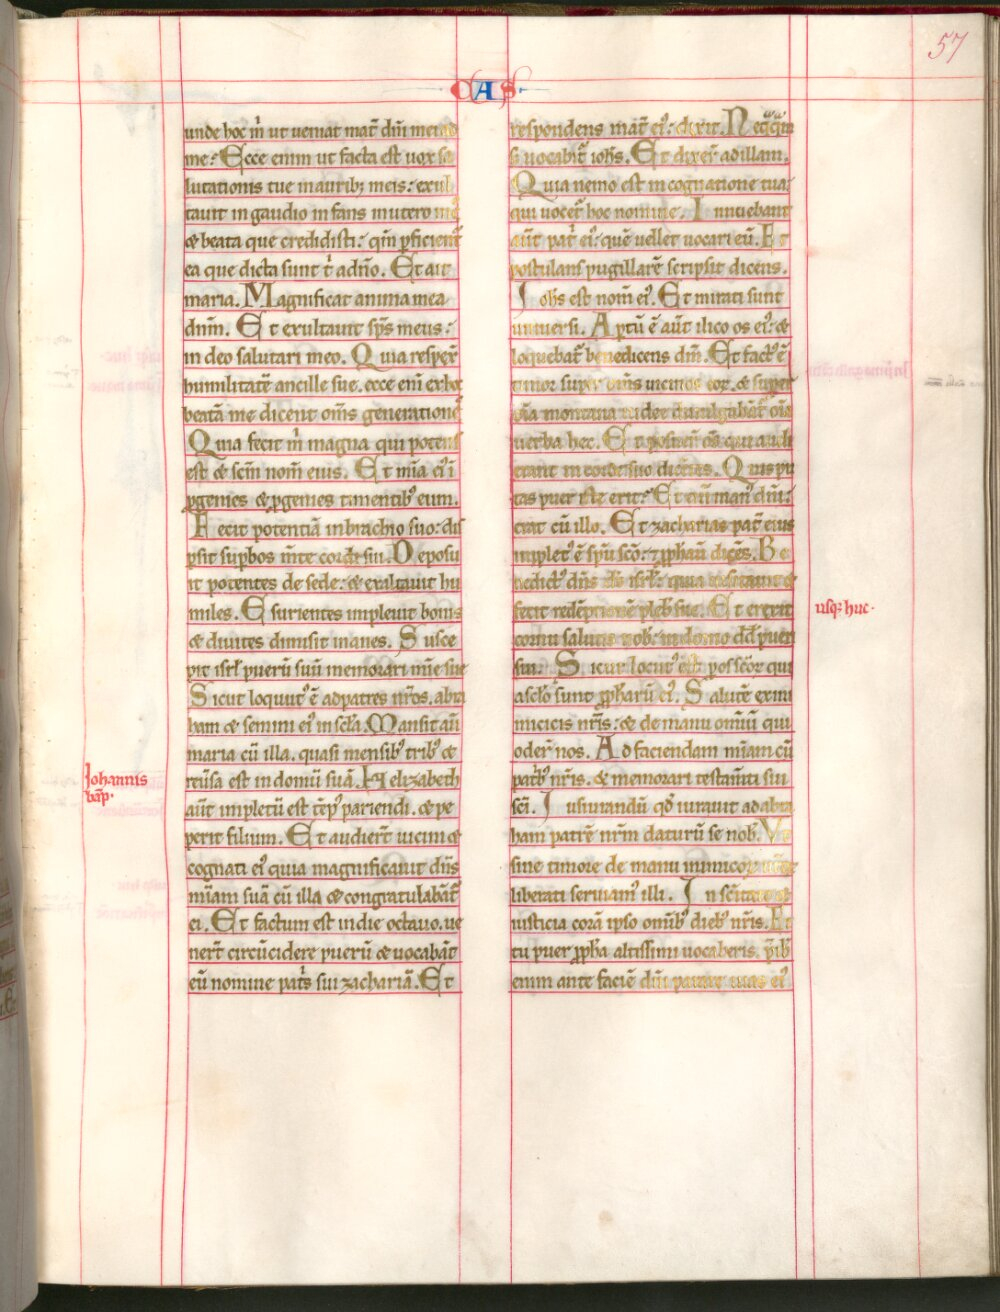 57
CAS
unde hoc m̄ ut ueniat mat̄ dn̄i mei ad
me: Ecce enim ut facta est uox sa
lutationis tue in aurib; meis: exul
tauit in gaudio in fans in utero mō
& beata que credidisti: qm̄ ꝑficient̄
ea que dicta sunt t̄ adn̄o. Et ait
maria. Magnificat anima mea
dnm̄. Et exultauit sp̄s meus:
in deo salutari meo. Quia respex̄
humilitatē ancille sue. ecce eni exhoc
beatā me dicent om̄s generationes
Quia fecit m̄ magna qui potens
est & scm̄ nom̄ eius. Et mīa eiꝰ ī
ꝓgenies & ꝓgenies timentibꝰ eum.
Fecit potentiā in brachio suo: dis
ꝑsit supbos m̄te cordis sui. Deposu
it potentes de sede: & exaltauit hu
miles. Esurientes impleuit bonis
& diuites dimisit inanes. Susce
pit isrl̄ puerū suū memorari mīe sue
Sicut locutꝰ ē adpatres nr̄os. abra
ham & semini eiꝰ in scl̄a. Mansit aū
maria cū illa. quasi mensibꝰ tribꝰ &
reūsa est in domū suā. Helizabeth
Johannis
bap̄.
aūt impletū est tēpꝰ pariendi. & pe
perit filium. Et audierт̄ uicini &
cognati eiꝰ quia magnificauit dn̄s
mīam suā cū illa & congratulabāt̄
ei. Et factum est in die octauo. ue
nerт̄ circūcidere puerū & uocabāt
eū nomine pat̄s sui zachariā. Et
respondens mat̄ eiꝰ: dixit. Nequaqm̄
s; uocabit̄ ioh̄s. Et dixer̄ ad illam.
Quia nemo est in cognatione tua:
qui uocet̄ hoc nomine. Innuebant
aūt pat̄ eiꝰ: quē uellet uocari eū. Et
postulans pugillarē scripsit dicens.
Joh̄s est nom̄ eiꝰ. Et mirati sunt
uniuersi. Aptū ē aūt ilico os eiꝰ: &
loquebat̄ benedicens dm̄. Et factꝰ ē
timor super om̄s uicinos eoꝝ. & super
om̄a montana iudee diuulgabāt̄ oīa
uerba hec. Et posuer̄ om̄s qui audi
erant in corde suo dicētes. Quis pu
tas puer iste erit? Et eni manꝰ dn̄i:
erat cū illo. Et zacharias pat̄ eius
impletꝰ ē spū scō: & ꝓph̄auit dicēs. Be
nedictꝰ dn̄s ds̄ isrl̄: quia uisitauit &
fecit redēptionē pleb̄ sue. Et erexit
usq; huc.
cornu salutis nob̄: in domo dd̄ pueri
sui. Sicut locutꝰ est ꝑ os scōꝝ qui
asclō sunt ꝓph̄arū eiꝰ. Salutē exini
micicis nr̄is: & de manu omniū qui
oder̄ nos. Ad faciendam mīam cū
patb̄ nr̄is. & memorari testam̄ti sui
scī. Jusiurandū qd̄ iurauit ad abra
ham patrē nr̄m daturū se nob̄. Vt
sine timore de manu inimicoꝝ
liberati seruiamꝰ illi. In scītate &
iusticia corā ipso omībꝰ diebꝰ nr̄is. Et
tu puer ꝓph̄a altissimi uocaberis. p̄ib̄
enim ante faciē dn̄i parare uias eiꝰ